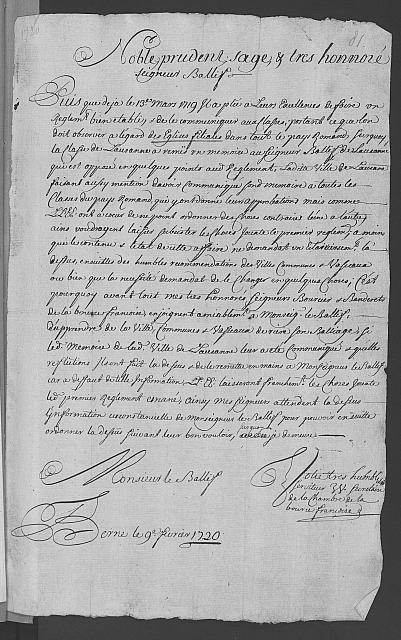 81
Noble, prudent, sage, & tres honnoré
Seigneur Ballif
Puis que deja le 13e Mars 1719 Il a plu a Leurs Excellences de faire un
Reglemt bien etably, & de le communiquer aux Classes, portant ce que l'on
doit observer a legard des Eglises filiales dans tout le pays Romand, sur quoy
la Classe de Lausanne a remis un memoire au Seigneur Ballif de Lausanne
qui est opposé en quelques points aud. Reglement, Laditte Ville de Lausanne
faisant aussy mention d'avoir Communiqué son memoire a toutes les
Classes du pays Romand que y ont donné leur approbation, mais comme
LL.EE. ont de ne point ordonner des choses contraires l'une a l'autre,
ains voudroyent laisser subsister les Choses suivant le premier reglemt, a moins
que le contenu & l'etat de cette affaire ne demandat un Eclercissemt la
dessus, ensuitte des humbles recommendations des Villes Communes & Vassaux
ou bien que la necessité demandat de le Changer en quelque Choses, C'est
pourquoy avant tout mes tres honnorés Seigneurs Boursier & Banderets
de la bource francoise, enjoignent amiablemt a Monseigr le Ballif
d'apprendre de la Ville Communes & Vassaux de rire son Balliage, Si
led. Memoire de lad. Ville de Lausanne leur a eté Communiqué & quelles
restitions Ils ont fait la dessus & de remettre en mains a Monseigneur le Ballif
car a deffaut d'icelle Information LL.EE. laisseront franchemt les Choses suivant
led. premier Reglement emané, Ainsy mes Seigneurs attendent la dessus
Information circonstantielle de Monseigneur le Ballif pour pouvoir en suitte
ordonner la dessus suivant leur bon vouloir, surquoy je demeure
Monsieur le Ballif
Votre tres humble
serviteur Secretaire
de la Chambre de la
bource francoise
Berne le 9e fevrier 1720